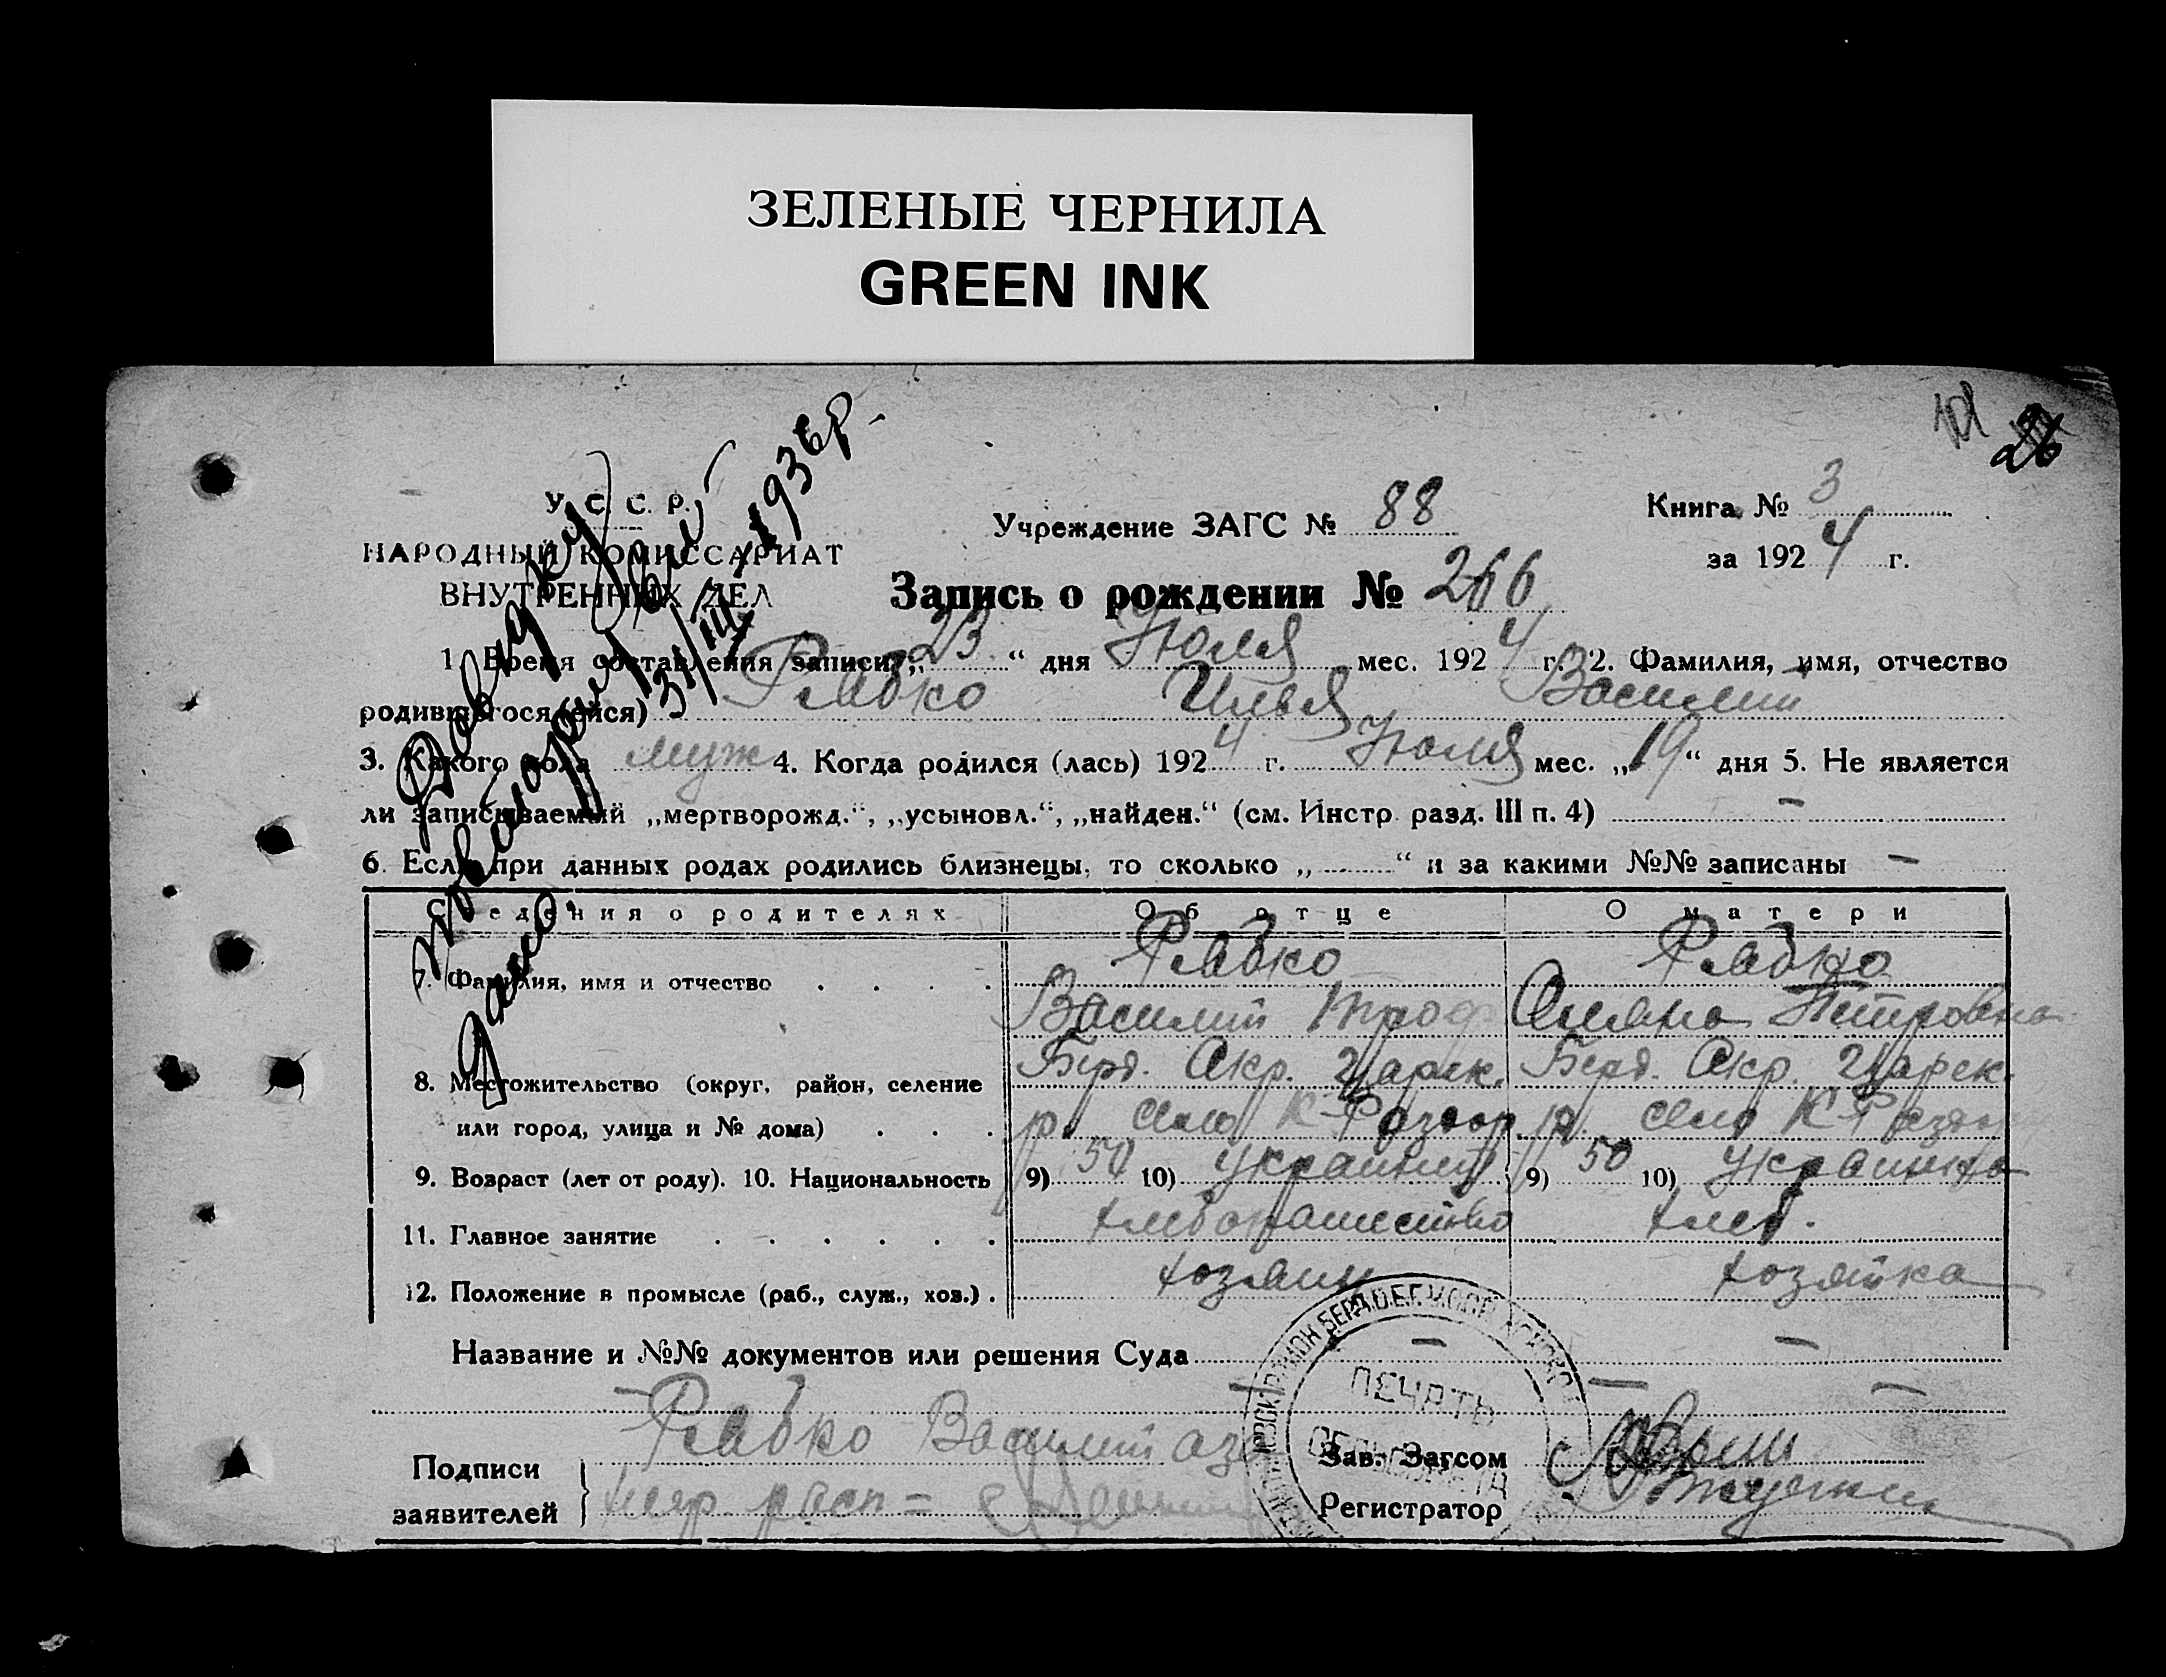 ЗЕЛЕНЫЕ ЧЕРНИЛА
GREEN INK
26
У. С. С. Р.
НАРОДНЫЙ КОМИССАРИАТ
ВНУТРЕННИХ ДЕЛ
Учреждение ЗАГС № 88
Книга № 3
за 1924 г.
Запись о рождении № 266
Довідку
данно 31/III 1936р.
1. Время составления записи „23“ дня Июля мес. 1924 г. 2. Фамилия, имя, отчество
родившегося (ейся) Рябко Илья Василий
3. Какого пола муж 4. Когда родился (лась) 1924 г. Июля мес. „19“ дня 5. Не является
ли записываемый „мертворожд.“, „усыновл.“, „найден.“ (см. Инстр. разд. III п. 4) —
6. Если при данных родах родились близнецы, то сколько „......“ и за какими №№ записаны —
Сведения о родителях Об отце О матери
7. Фамилия, имя и отчество . . . . Рябко Рябко
Василий Троф Петровна
8. Местожительство (округ, район, селение Берд. Окр. Царек. Берд. Окр. Царек.
или город, улица и № дома) . . . р. село К Раздор р. село К Раздор
9. Возраст (лет от роду). 10. Национальность 9) 50 10) украинец 9) 50 10) украинка
11. Главное занятие . . . . . . хлебопашество хлеб.
12. Положение в промысле (раб., служ., хоз.) . хозяин хозяйка
Название и №№ документов или решения Суда — —
— — — —
Подписи
заявителей
Рябко Василий
ПЕЧАТЬ
Зав. Загсом
Регистратор